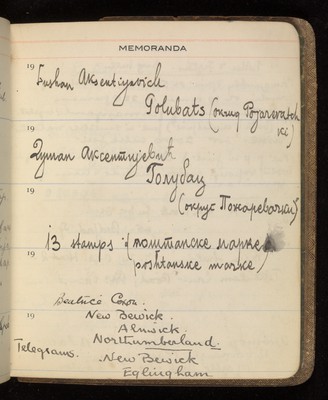 MEMORANDA
19
Dushan Aksentiyevich
Golubats (округ Pozarevatch
ki)
19
Душан Аксентијевић
Голубац
19
(округ Пожаревачки)
13 stamps (поштанске марке
19
poshtanske marke)
Beatrice
19
New Bewick.
Alnwick.
Northumberland.
Telegrams.
New Bewick
Eglingham